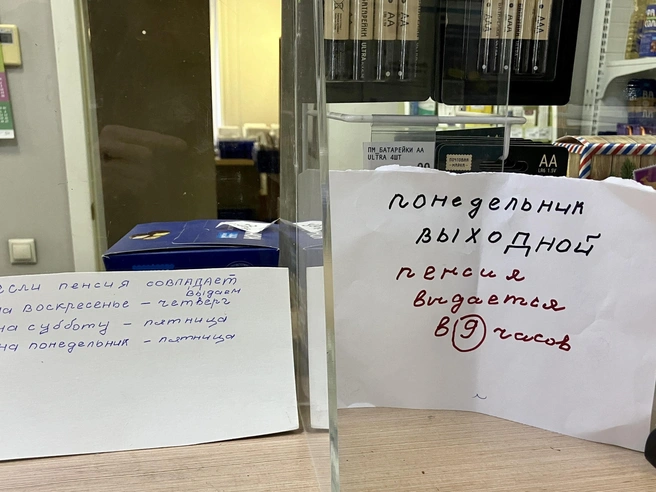 если пенсия совпадает
выдаем
на воскресенье – четверг
на субботу – пятница
на понедельник – пятница
понедельник
выходной
пенсия
выдается
в 9 часов
ПМ БАТАРЕЙКИ АА
ULTRA 4ШТ
AA
AA
AA